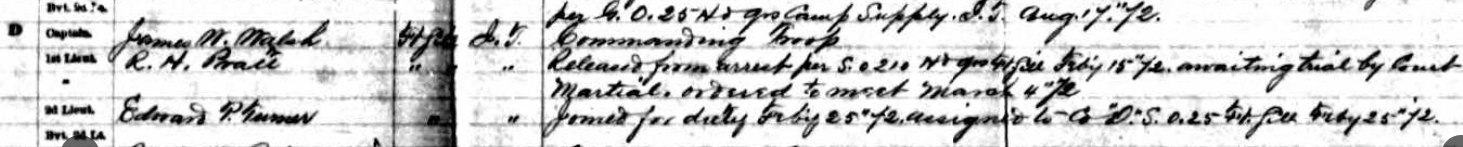 Bvt. 2d Lt.
per G. O. 25 Hd qrs Camp Supply. I. T. Aug. 17" 72.
D Captain. James W. Walsh Ft Sill I. T. Commanding Troop
1st Lieut. R. H. Pratt " " " Released from arrest per S. O 210 Hd qrs Ft Sill Feby 15" 72. awaiting trial by Court
" Martial. ordered to meet March 4" 72
2d Lieut. Edward P. Turner " " Joined for duty Feby 25" 72. assigned to Co "D". S. O. 25 Ft. Sill Feby 25" 72.
Bvt. 2d Lt.